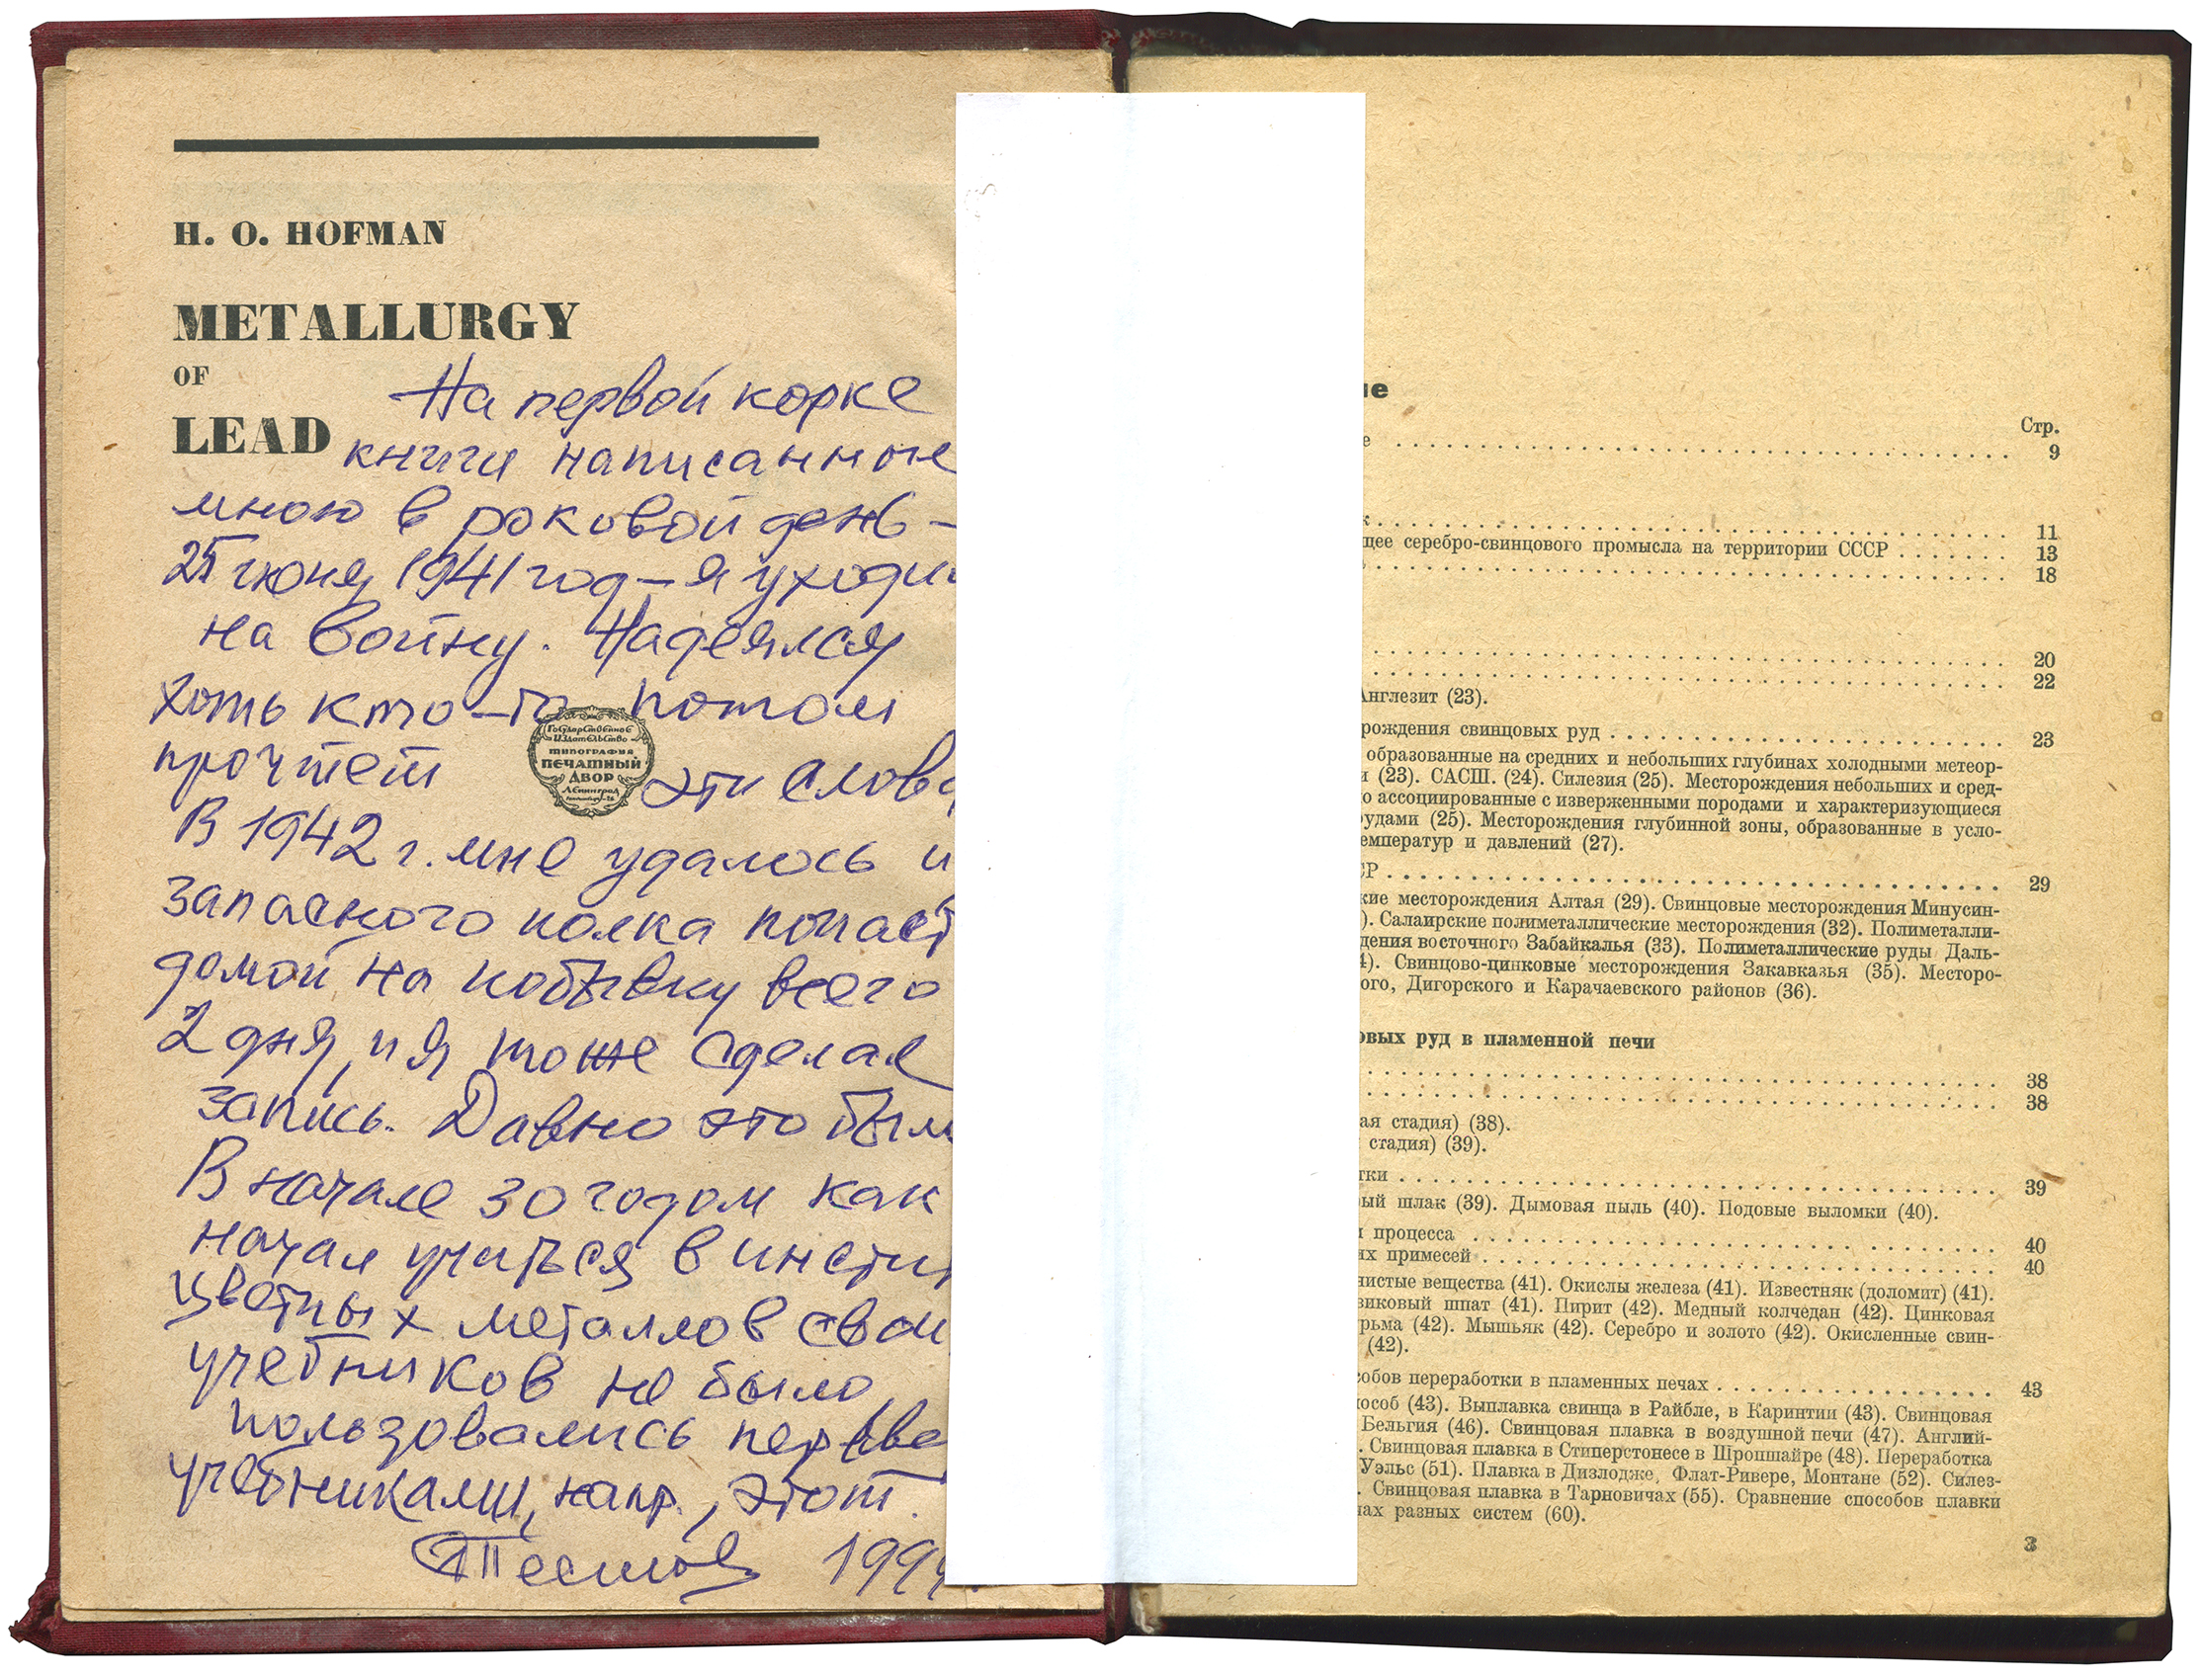 H. O. HOFMAN
METALLURGY
OF
LEAD
На первой корке
книги написанное
мною в роковой день –
25 июня 1941 год – я уходи
на войну. Надеялся
хоть кто-то потом
прочтет эти слова
Государственное
издательство
типография
ПЕЧАТНЫЙ
ДВОР
Ленинград
В 1942 г. мне удалось и
запасного полка попаст
домой на побывку всего
2 дня, и я тоже сделал
запись. Давно это был
В начале 30 годом как
начал учиться в инсти
цветных металлов свои
учебников не было,
пользовались перево
учебниками, напр., этот.
1999
ие
Стр.
е . . . . . . . . . . 9
к . . . . . . . . . . 11
щее серебро-свинцового промысла на территории СССР . . . . . . . 13
. . . . . . . . . . 18
. . . . . . . . . . 20
. . . . . . . . . . 22
Англезит (23).
рождения свинцовых руд . . . . . . . . . . 23
образованные на средних и небольших глубинах холодными метеор-
и (23). САСШ. (24). Силезия (25). Месторождения небольших и сред-
о ассоциированные с изверженными породами и характеризующиеся
рудами (25). Месторождения глубинной зоны, образованные в усло-
емператур и давлений (27).
СР . . . . . . . . . . 29
кие месторождения Алтая (29). Свинцовые месторождения Минусин-
). Салаирские полиметаллические месторождения (32). Полиметалли-
дения восточного Забайкалья (33). Полиметаллические руды Даль-
4). Свинцово-цинковые месторождения Закавказья (35). Месторо-
ого, Дигорского и Карачаевского районов (36).
овых руд в пламенной печи
. . . . . . . . . . 38
. . . . . . . . . . 38
ая стадия) (38).
стадия) (39).
тки . . . . . . . . . . 39
ый шлак (39). Дымовая пыль (40). Подовые выломки (40).
и процесса . . . . . . . . . . 40
их примесей . . . . . . . . . . 40
нистые вещества (41). Окислы железа (41). Известняк (доломит) (41).
виковый шпат (41). Пирит (42). Медный колчедан (42). Цинковая
рьма (42). Мышьяк (42). Серебро и золото (42). Окисленные свин-
(42).
собов переработки в пламенных печах . . . . . . . . . . 43
особ (43). Выплавка свинца в Райбле, в Каринтии (43). Свинцовая
Бельгия (46). Свинцовая плавка в воздушной печи (47). Англий-
. Свинцовая плавка в Стиперстонесе в Шропшайре (48). Переработка
Уэльс (51). Плавка в Дизлодже, Флат-Ривере, Монтане (52). Силез-
. Свинцовая плавка в Тарновичах (55). Сравнение способов плавки
чах разных систем (60).
3